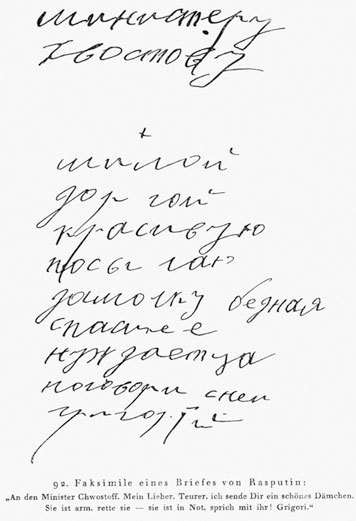 министеру
Хвостову
+
милой
дор гой
красивую
посылаю
дамочку бедная
спаси ее
нуждаетца
поговори снеи
Григорий
92. Faksimile eines Briefes von Rasputin:
„An den Minister Chwostoff. Mein Lieber, Teurer, ich sende Dir ein schönes Dämchen.
Sie ist arm, rette sie — sie ist in Not, sprich mit ihr! Grigori.“